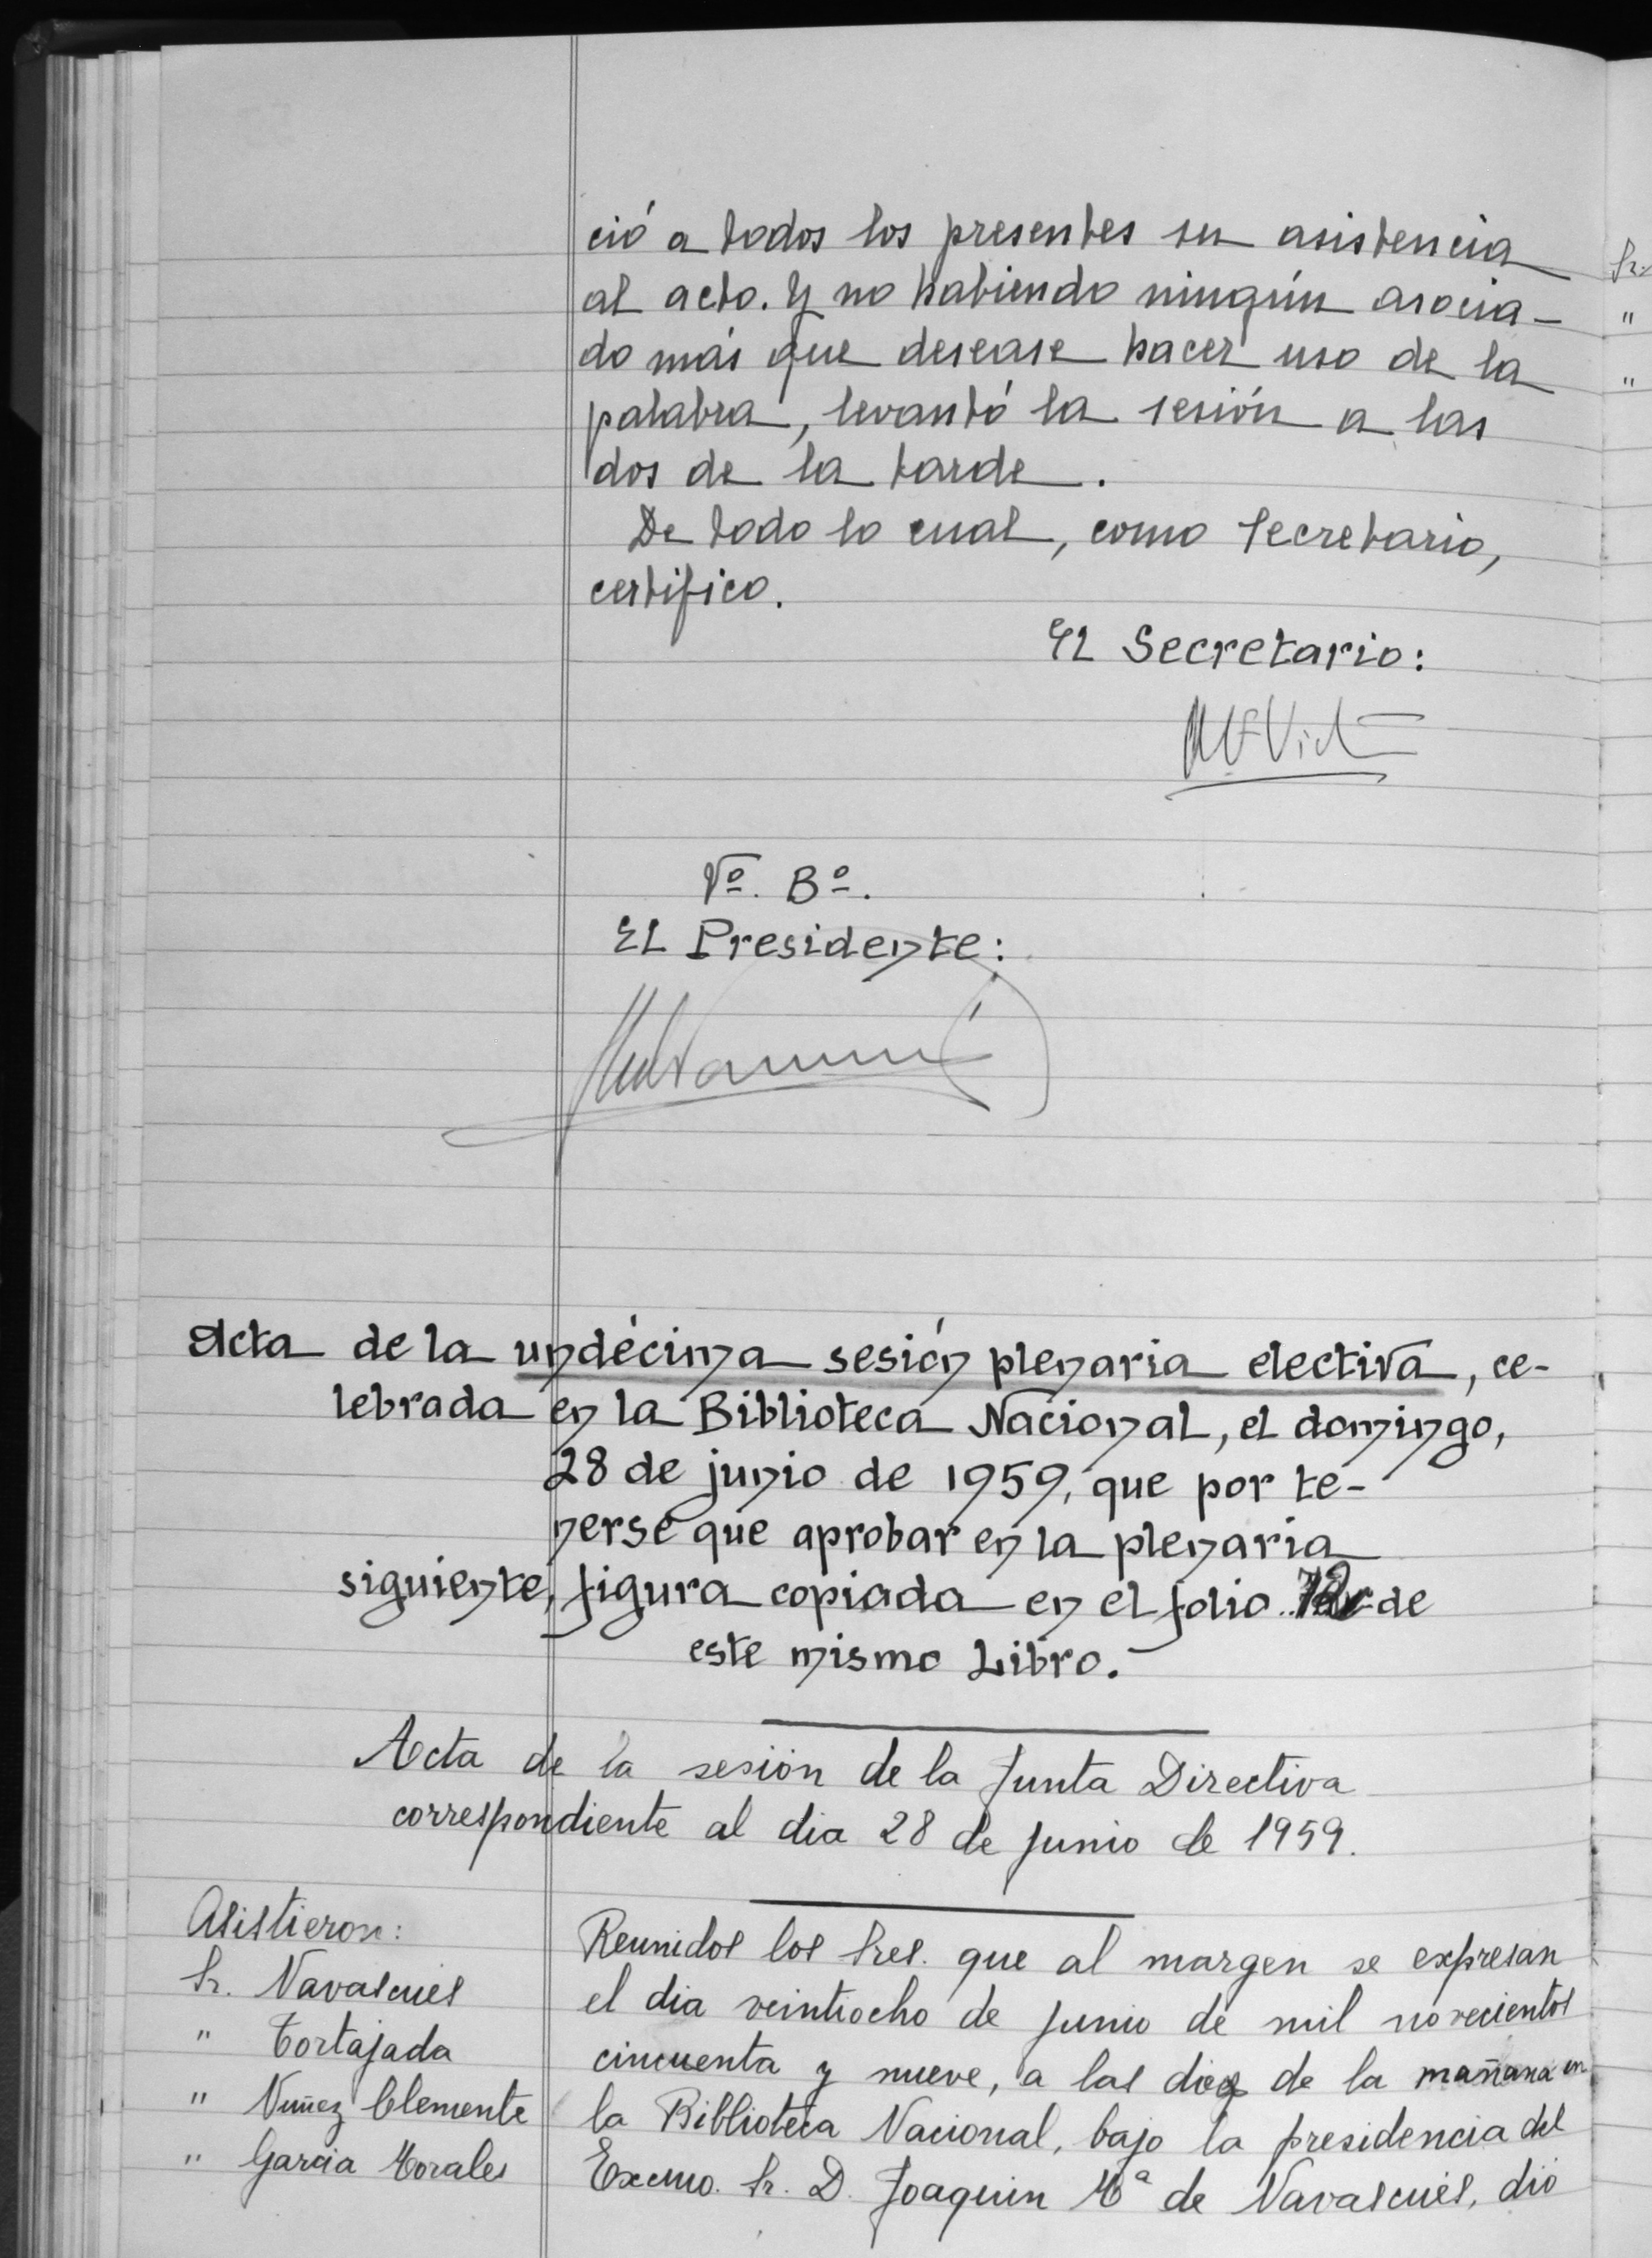 ció a todos los presentes su asistencia
al acto. Y no habiendo ningún asocia-
do más que desease hacer uso de la
palabra, levantó la sesión a las
dos de la tarde.
De todo lo cual, como Secretario,
certifico.
El Secretario:
Vº. Bº.
El Presidente:
Acta de la undécima sesión plenaria electiva, ce-
lebrada en la Biblioteca Nacional, el domingo,
28 de junio de 1959, que por te-
nerse que aprobar en la plenaria
siguiente, figura copiada en el folio de
este mismo Libro.
Acta de la sesión de la Junta Directiva
correspondiente al dia 28 de Junio de 1959.
Asistieron:
Sr. Navascues
" Tortajada
" Nuñez Clemente
" Garcia Morales
Reunidos los Sres. que al margen se expresan
el dia veintiocho de Junio de mil novecientos
cincuenta y nueve, a las diez de la mañana en
la Biblioteca Nacional, bajo la presidencia del
Excmo. Sr. D. Joaquin Mª de Navascués, dió
Sr.
"
"